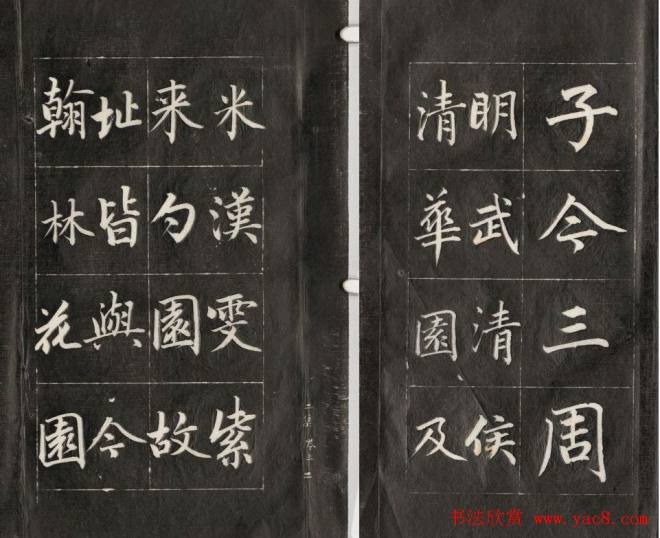 子今三周
明武清侯
清華園及
米漢雯紫
来勺園故
址皆與今
翰林花園
书法欣赏 www.yac8.com